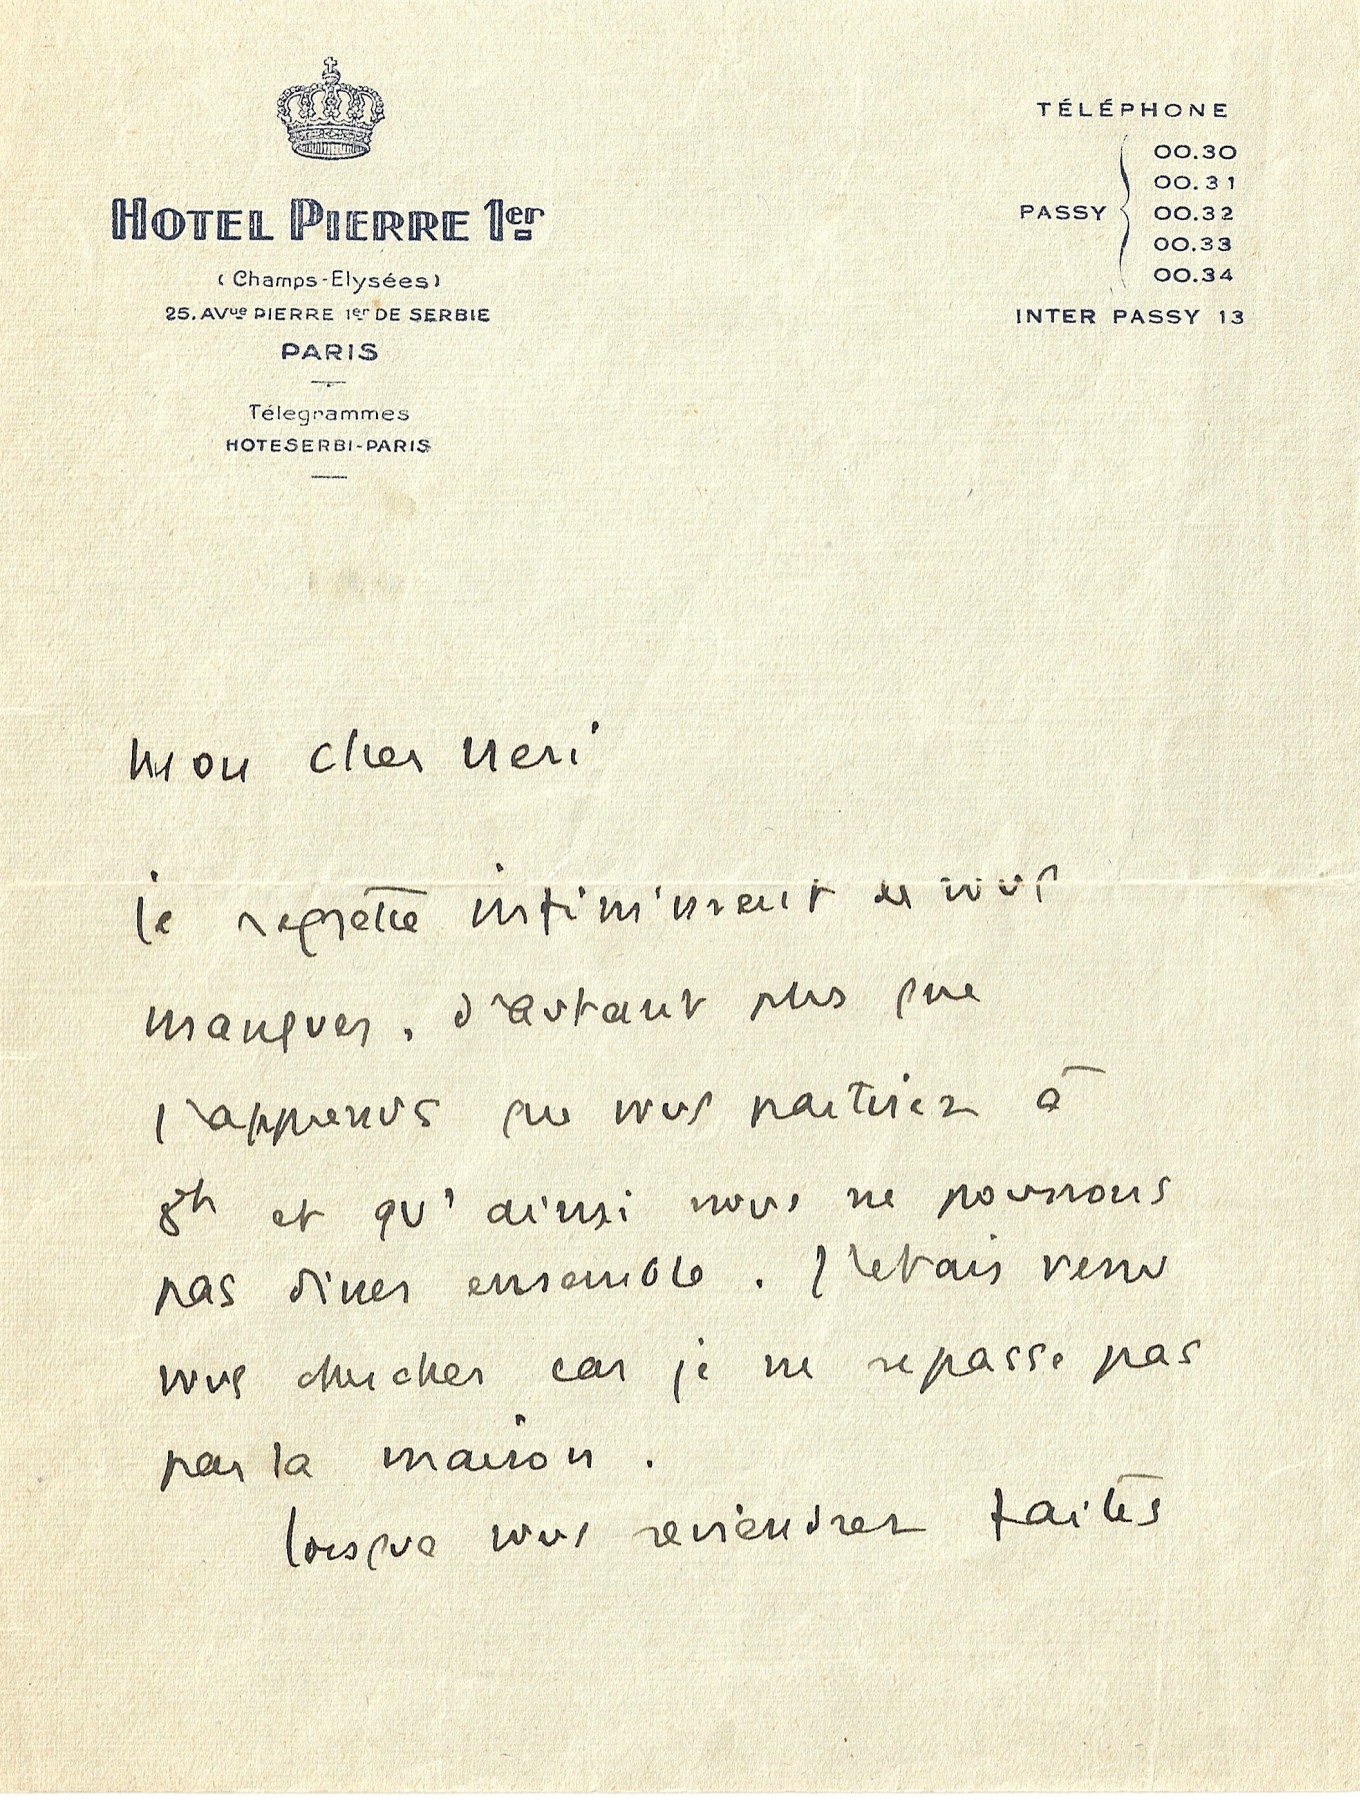 HOTEL PIERRE 1er
(Champs-Elysées)
25. AVue PIERRE 1er DE SERBIE
PARIS
Télegrammes
HOTESERBI-PARIS
TÉLÉPHONE
PASSY
00.30
00.31
00.32
00.33
00.34
INTER PASSY 13
Mon cher Neri
je regrette infiniment de vous
manquer, d'autant plus que
j'apprends que vous partiriez à
8h et qu'ainsi nous ne pourrons
pas diner ensemble. J'etais venu
vous chercher car je ne repasse pas
par la maison.
Lorsque vous reviendrez faites